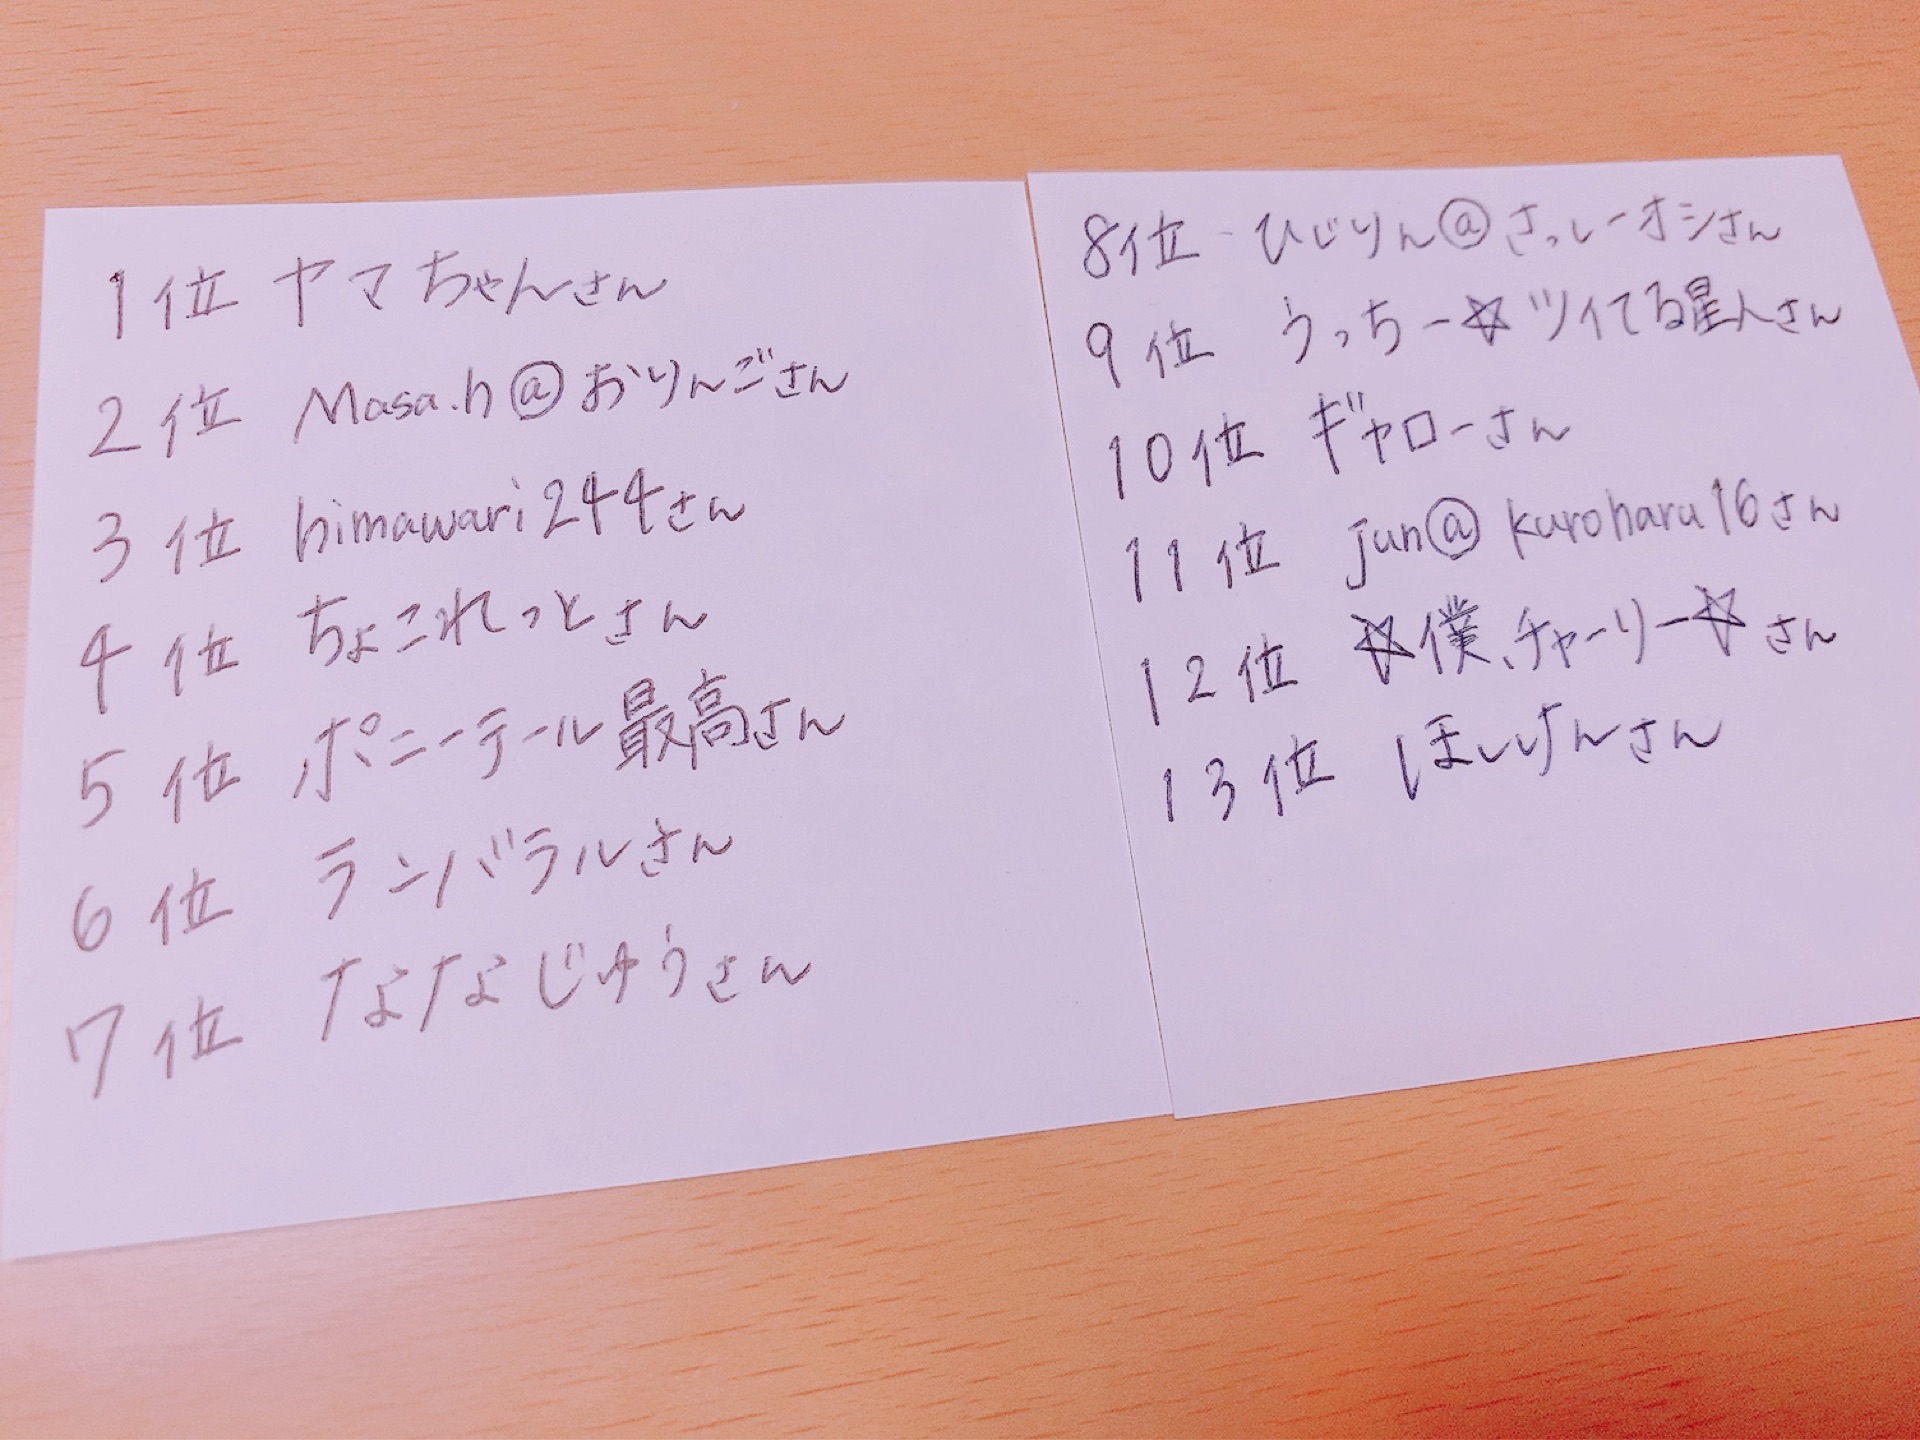 1位 ヤマちゃんさん
2位 Masa.h@おりんごさん
3位 himawari244さん
4位 ちょこれっとさん
5位 ポニーテール最高さん
6位 ランバラルさん
7位 ななじゅうさん
8位 ひじりん@さっしーオシさん
9位 うっちー☆ツイてる星人さん
10位 ギャローさん
11位 jun@kuroharu16さん
12位 ☆僕、チャーリー☆さん
13位 ほしけんさん